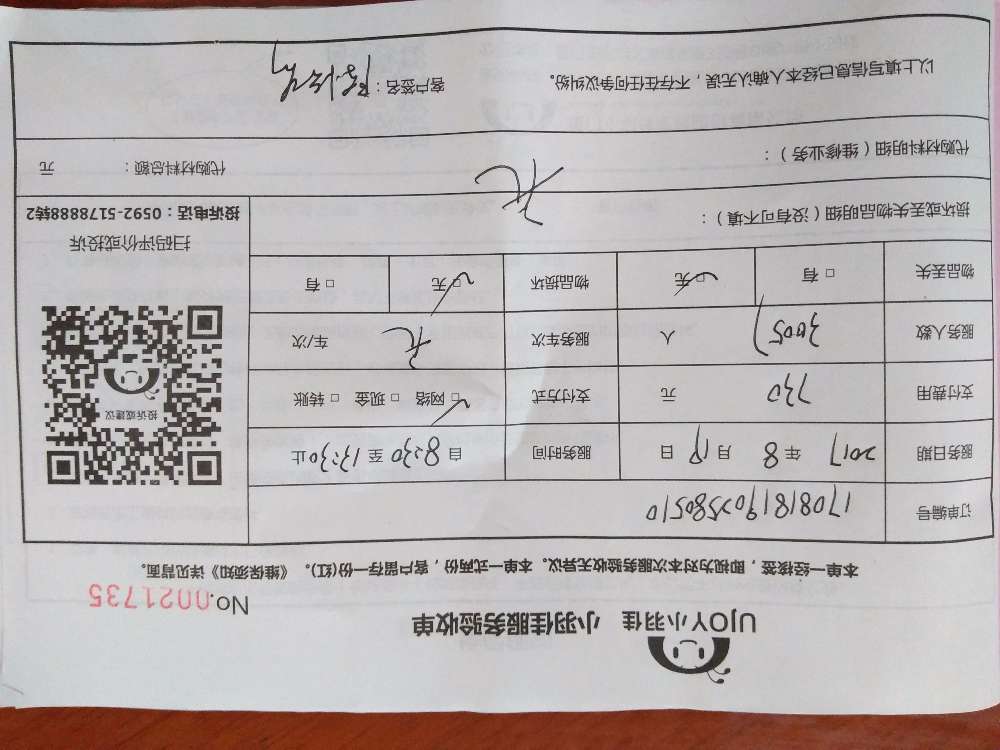 UJOY小羽佳 小羽佳服务验收单
No.0021735
本单一经接签，即视为对本次服务验收无异议。本单一式两份，客户留存一份(红)。《维保须知》详见背面。
订单编号 170818190258050510
服务日期 2017 年 8 月 19 日 服务时间 自 8:30 至 13:30 止
支付费用 730 元 支付方式 □ 网络 □ 现金 □ 转账
服务人数 人 服务车次 无 车/次
物品丢失 □ 有 □ 无 物品损坏 □ 无 □ 有
投诉或建议
扫码评价或投诉
投诉电话：0592-5178888转2
损坏或丢失物品明细（没有可不填）：
无
代购材料明细（维修业务）：
代购材料总额： 元
以上填写信息已经本人确认无误，不存在任何争议纠纷。 客户签名：